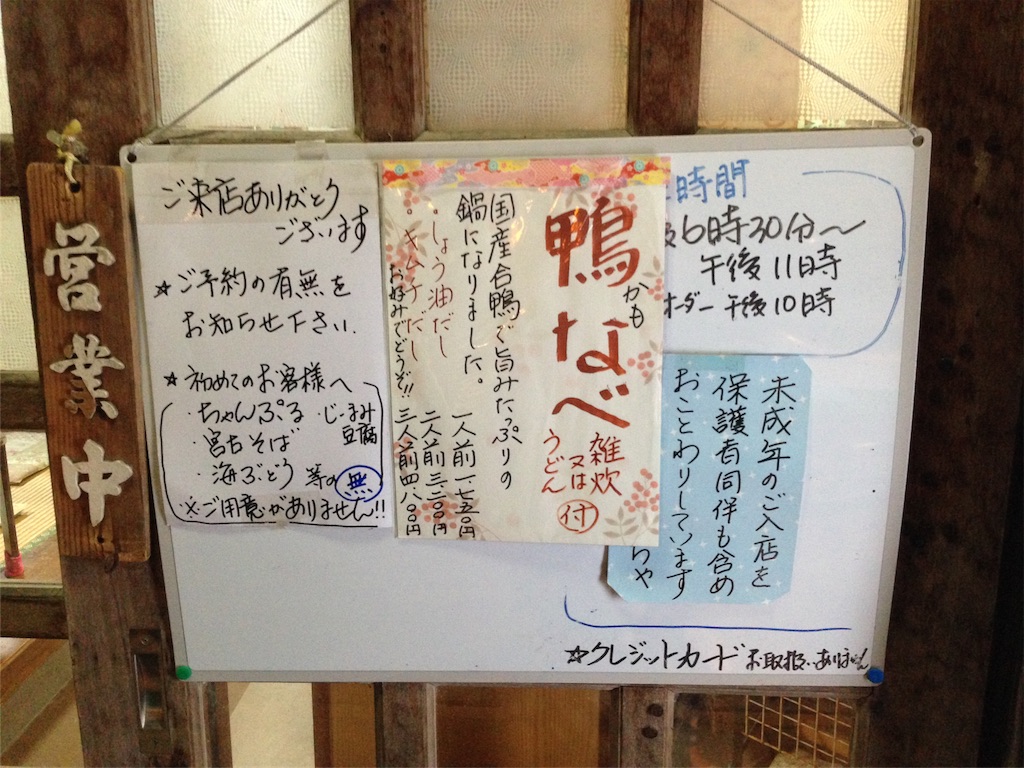 営業中
ご来店ありがとう
ございます
☆ご予約の有無を
お知らせ下さい.
☆初めてのお客様へ
・ちゃんぷる ・じーまみ
豆腐
・宮古そば
・海ぶどう 等の無
※ご用意がありません!!
鴨なべ
かも
雑炊
又は
うどん
付
国産合鴨で旨みたっぷりの
鍋になりました。
・しょう油だし
・キムチだし
お好みでどうぞ!!
一人前 一、七五〇円
二人前 三、二〇〇円
三人前 四、八〇〇円
時間
6時30分〜
午後11時
オーダー 午後10時
未成年のご入店を
保護者同伴も含め
おことわりしています
らや
☆クレジットカードお取扱いありません